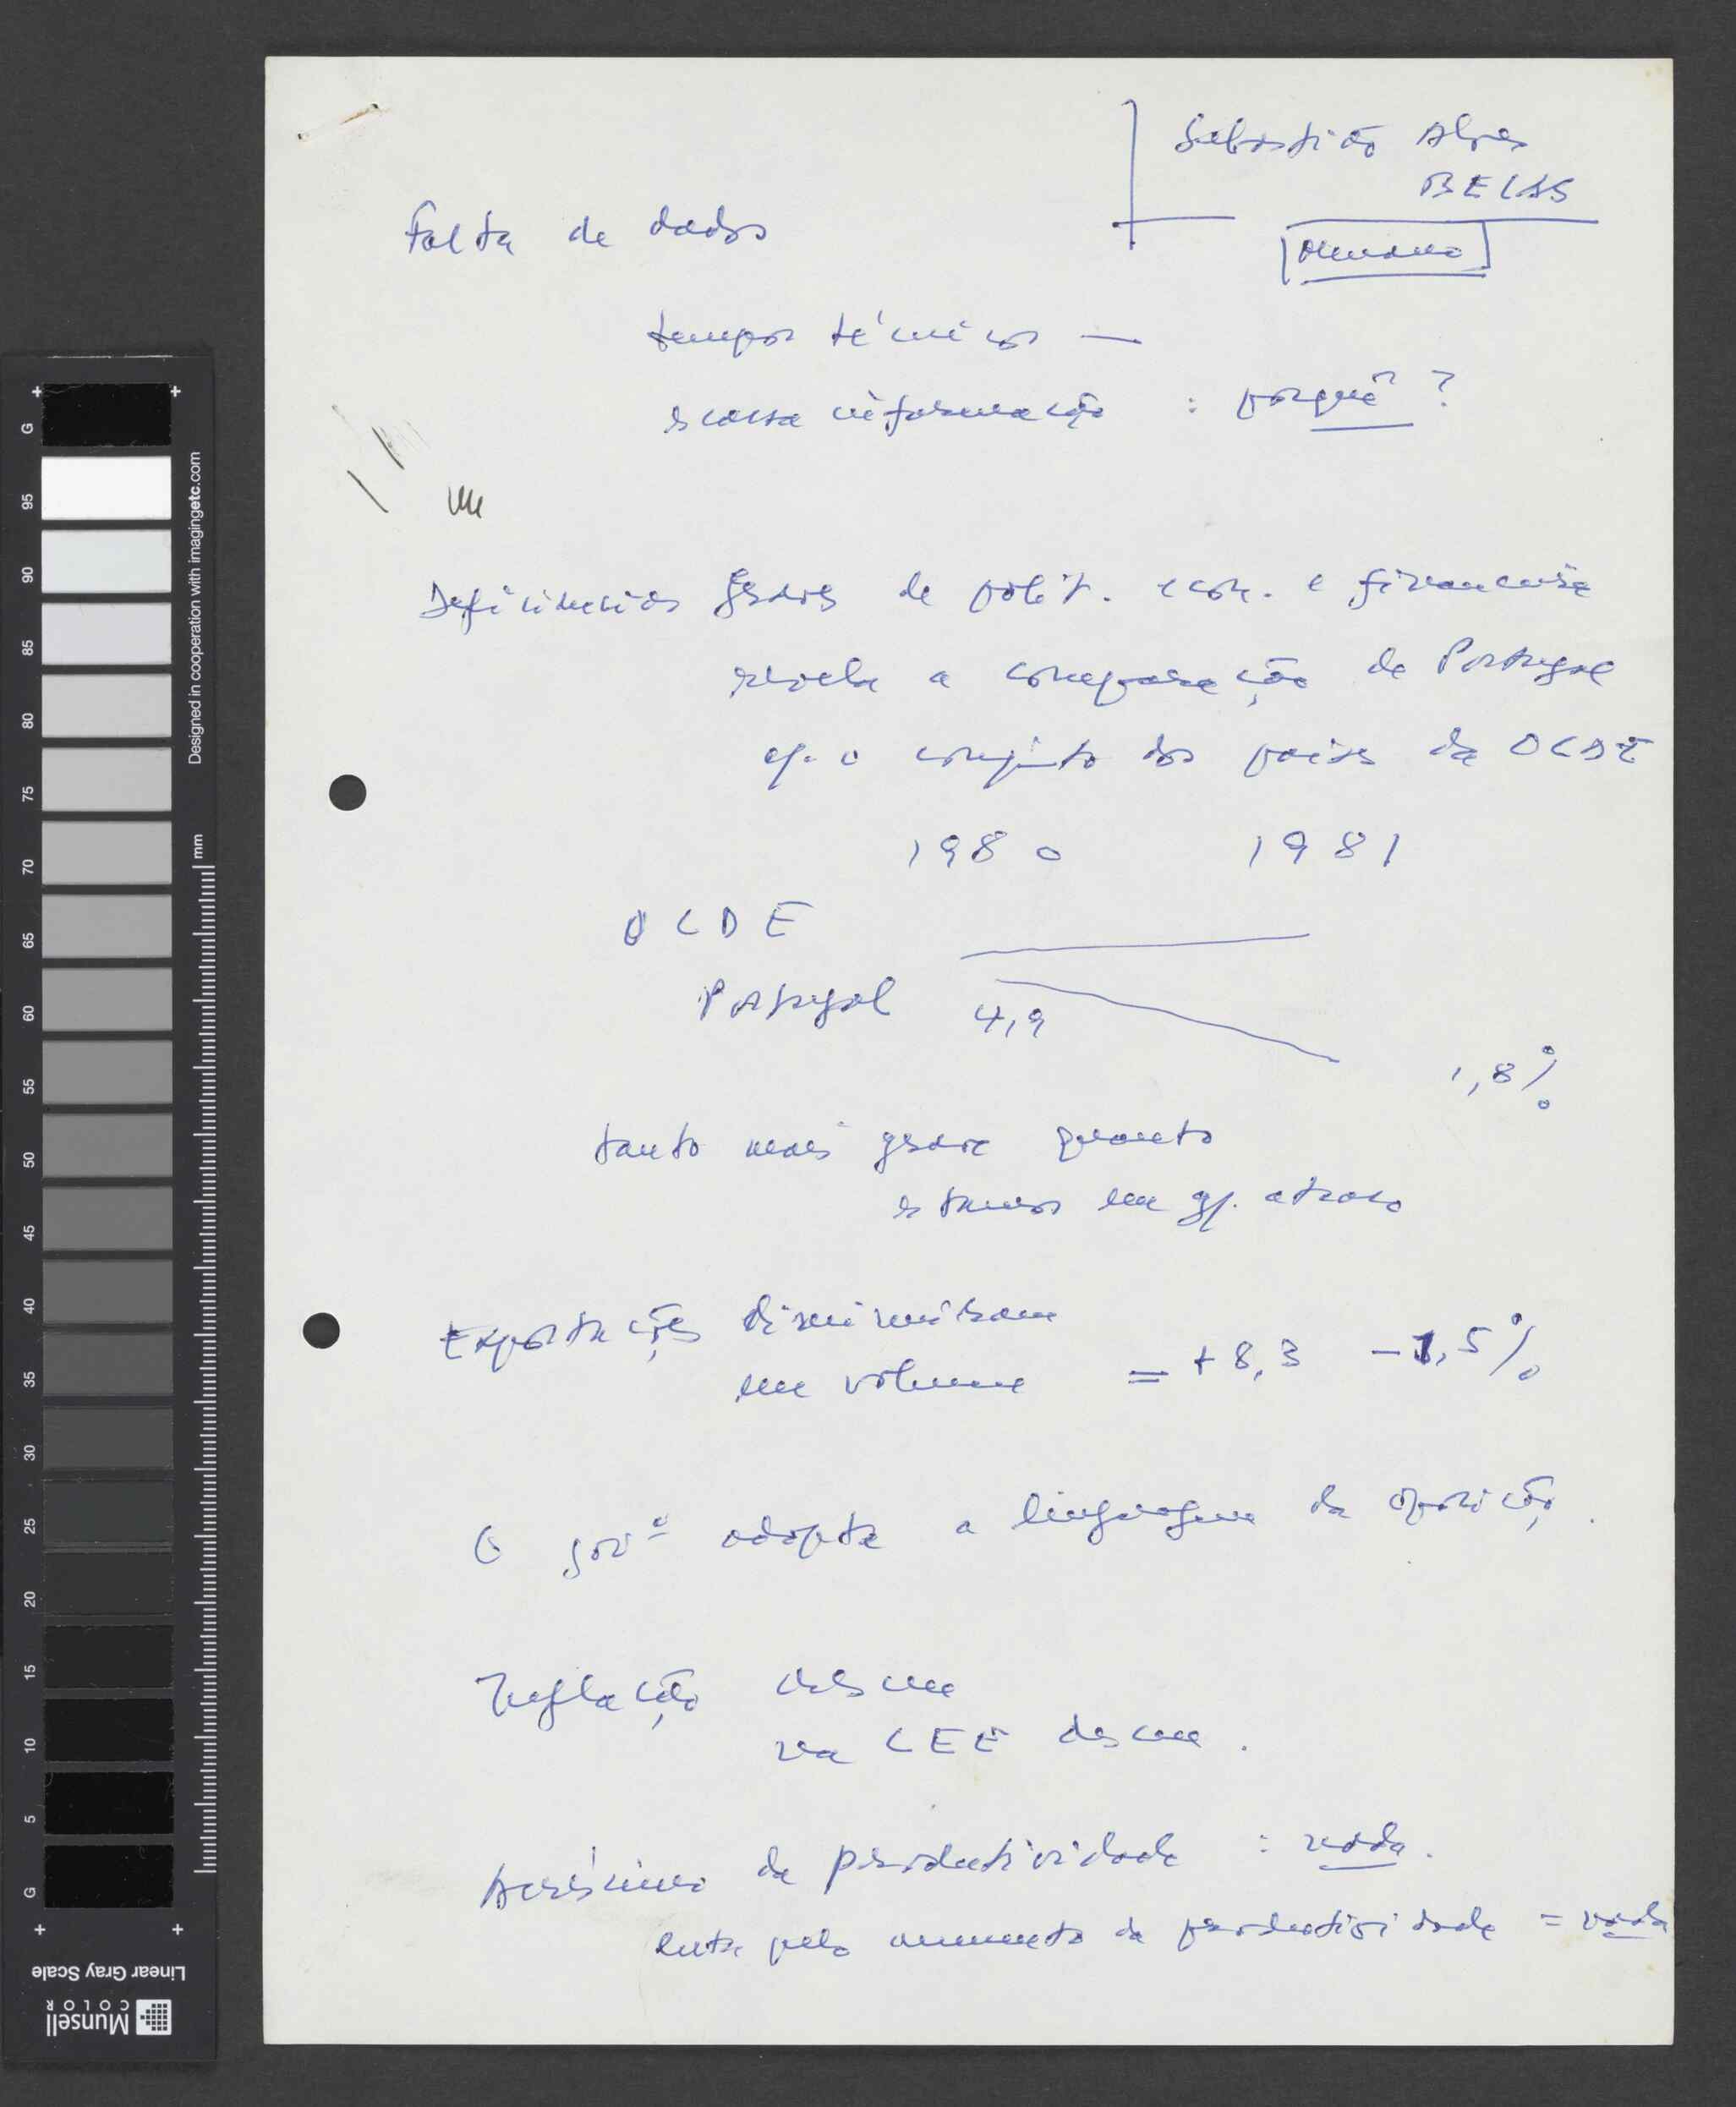 Sebastião Alves
BELAS
Falta de dados
tempos técnicos —
escassa informação : porquê ?
Deficiencias graves de polit. econ. e financeira
revela a comparação de Portugal
c/. o conjunto dos países da OCDE
1980 1981
OCDE
Portugal 4,9
1,8%
tanto mais grave quanto
estamos em gr. atraso
Exportações diminuiram
em volume = +8,3 -1,5%
O govº adopta a linguagem da oposição.
Inflação desceu
na CEE desceu.
Acréscimo da productividade : nada.
luta pelo aumento da productividade = nada
G 95 90 85 80 75 70 65 60 55 50 45 40 35 30 25 20 15 10 5 G
Designed in cooperation with imagingetc.com
mm
Linear Gray Scale
Munsell
COLOR